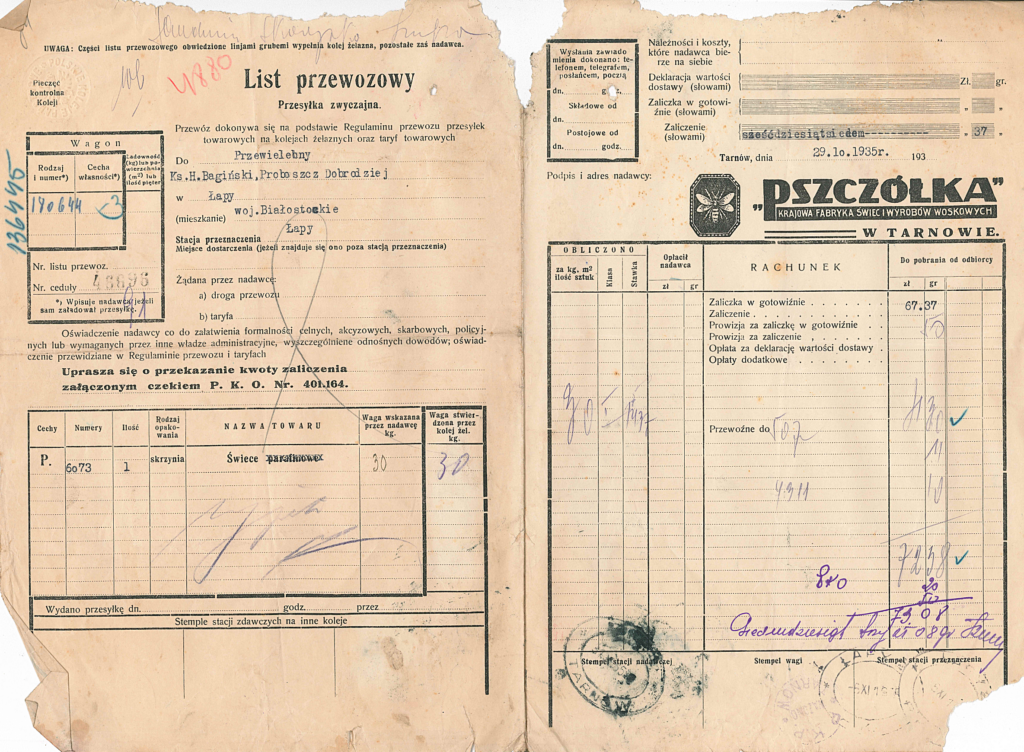 UWAGA: Części listu przewozowego obwiedzione linjami grubemi wypełnia kolej żelazna, pozostałe zaś nadawca.
Pieczęć
kontrolna
Kolej
4880
List przewozowy
Przesyłka zwyczajna.
Przewóz dokonywa się na podstawie Regulaminu przewozu przesyłek
towarowych na kolejach żelaznych oraz taryf towarowych
Wagon
Rodzaj
i numer*)
Cecha
własności*)
Ładowność
(kg) lub po-
wierzchnia
(m²) lub
ilość pięter
136445
190644
Nr. listu przewoz.
Nr. ceduły 48696
*) Wpisuje nadawca, jeżeli
sam załadował przesyłkę.
Do Przewielebny
Ks.H.Bagiński,Proboszcz Dobrodziej
w Łapy
(mieszkanie) woj.Białostockie
Łapy
Stacja przeznaczenia
Miejsce dostarczenia (jeżeli znajduje się ono poza stacją przeznaczenia)
Żądana przez nadawcę:
a) droga przewozu
b) taryfa
Oświadczenie nadawcy co do załatwienia formalności celnych, akcyzowych, skarbowych, policyj-
nych lub wymaganych przez inne władze administracyjne, wyszczególnienie odnośnych dowodów; oświad-
czenie przewidziane w Regulaminie przewozu i taryfach
Uprasza się o przekazanie kwoty zaliczenia
załączonym czekiem P. K. O. Nr. 401.164.
Cechy
Numery
Ilość
Rodzaj
opako-
wania
NAZWA TOWARU
Waga wskazana
przez nadawcę
kg.
Waga stwier-
dzona przez
kolej żel.
kg.
P. 6073 1 skrzynia Świece parafinowe 30 30
Wydano przesyłkę dn. godz. przez
Stemple stacji zdawczych na inne koleje
Wysłania zawiado
mienia dokonano: te-
lefonem, telegrafem,
posłańcem, pocztą
dn. godz.
Składowe od
dn. godz.
Postojowe od
dn. godz.
Należności i koszty,
które nadawca bie-
rze na siebie
Deklaracja wartości
dostawy (słowami) Zł. gr.
Zaliczka w gotowi-
źnie (słowami) " "
Zaliczenie
(słowami) sześćdziesiątsiedem---------- " 37 "
Tarnów, dnia 29.1o.1935r. 193
Podpis i adres nadawcy:
"PSZCZÓŁKA"
KRAJOWA FABRYKA ŚWIEC I WYROBÓW WOSKOWYCH
W TARNOWIE.
OBLICZONO
za kg, m²
ilość sztuk
Klasa
Stawka
Opłacił
nadawca
zł gr
RACHUNEK
Do pobrania od odbiorcy
zł gr
Zaliczka w gotowiźnie
Zaliczenie 67.37
Prowizja za zaliczkę w gotowiźnie
Prowizja za zaliczenie
Opłata za deklarację wartości dostawy
Opłaty dodatkowe
30
Przewoźne do
4311
7238
20
73.08
Siedemdziesiąt trzy zł 08 gr
Stempel stacji nadawczej
Stempel wagi
Stempel stacji przeznaczenia
TARNÓW